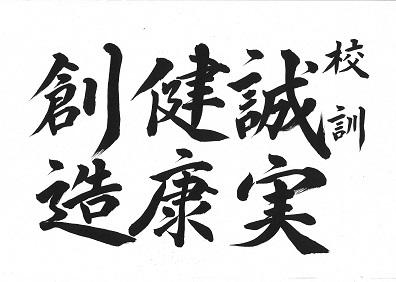 校訓
誠実
健康
創造